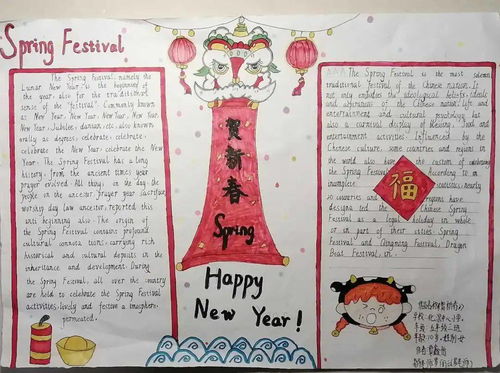 Spring Festival
The Spring Festival, namely the
Lunar New Year, is the beginning of
the year, also for the traditional
sense of the "festival". Commonly known
as New Year, New Year, New Year, New
New Year, Jubilee, danian, etc, also known
orally as degrees, celebrate, celebrate,
celebrate the New Year, celebrate the New
Year. The Spring Festival has a long
history, from the ancient times year
prayer evolved. All things in the day, the
people in the ancestor, prayer year sacrifice
worship day, law ancestor, reported this
anti beginning also. The origin of
the Spring Festival contains profound
cultural connotations, carrying rich
historical and cultural deposits in the
inheritance and development. During
the Spring Festival, all over the country
are held to celebrate the Spring Festival
activities, lively and festive atmosphere
permeated.
贺新春
Spring
Happy
New Year!
The Spring Festival is the most solemn
traditional festival of the Chinese nation. It
not only embodies the ideological beliefs, ideals
and aspirations of the Chinese nation, life and
entertainment and cultural psychology, but
also a carnival display of blessing, food and
entertainment activities. Influenced by the
Chinese culture, some countries and regions in
the world also have the custom of celebrating
the Spring Festival. According to
incomplete statistics, nearly
20 countries and regions have
designated the Chinese Spring
Festival as a legal holiday in whole
or in part of their cities. Spring
Festival and Qingming Festival, Dragon
Boat Festival, in
福